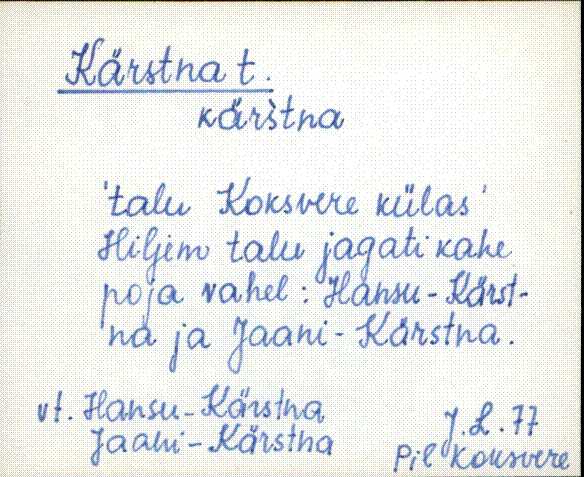 Kärstna t.
kär̀stna
'talu Koksvere külas'
Hiljem talu jagati kahe
poja vahel: Hansu-Kärst-
na ja Jaani-Kärstna.
vt. Hansu-Kärstna
Jaani-Kärstna
J. L. 77
Pil Koksvere